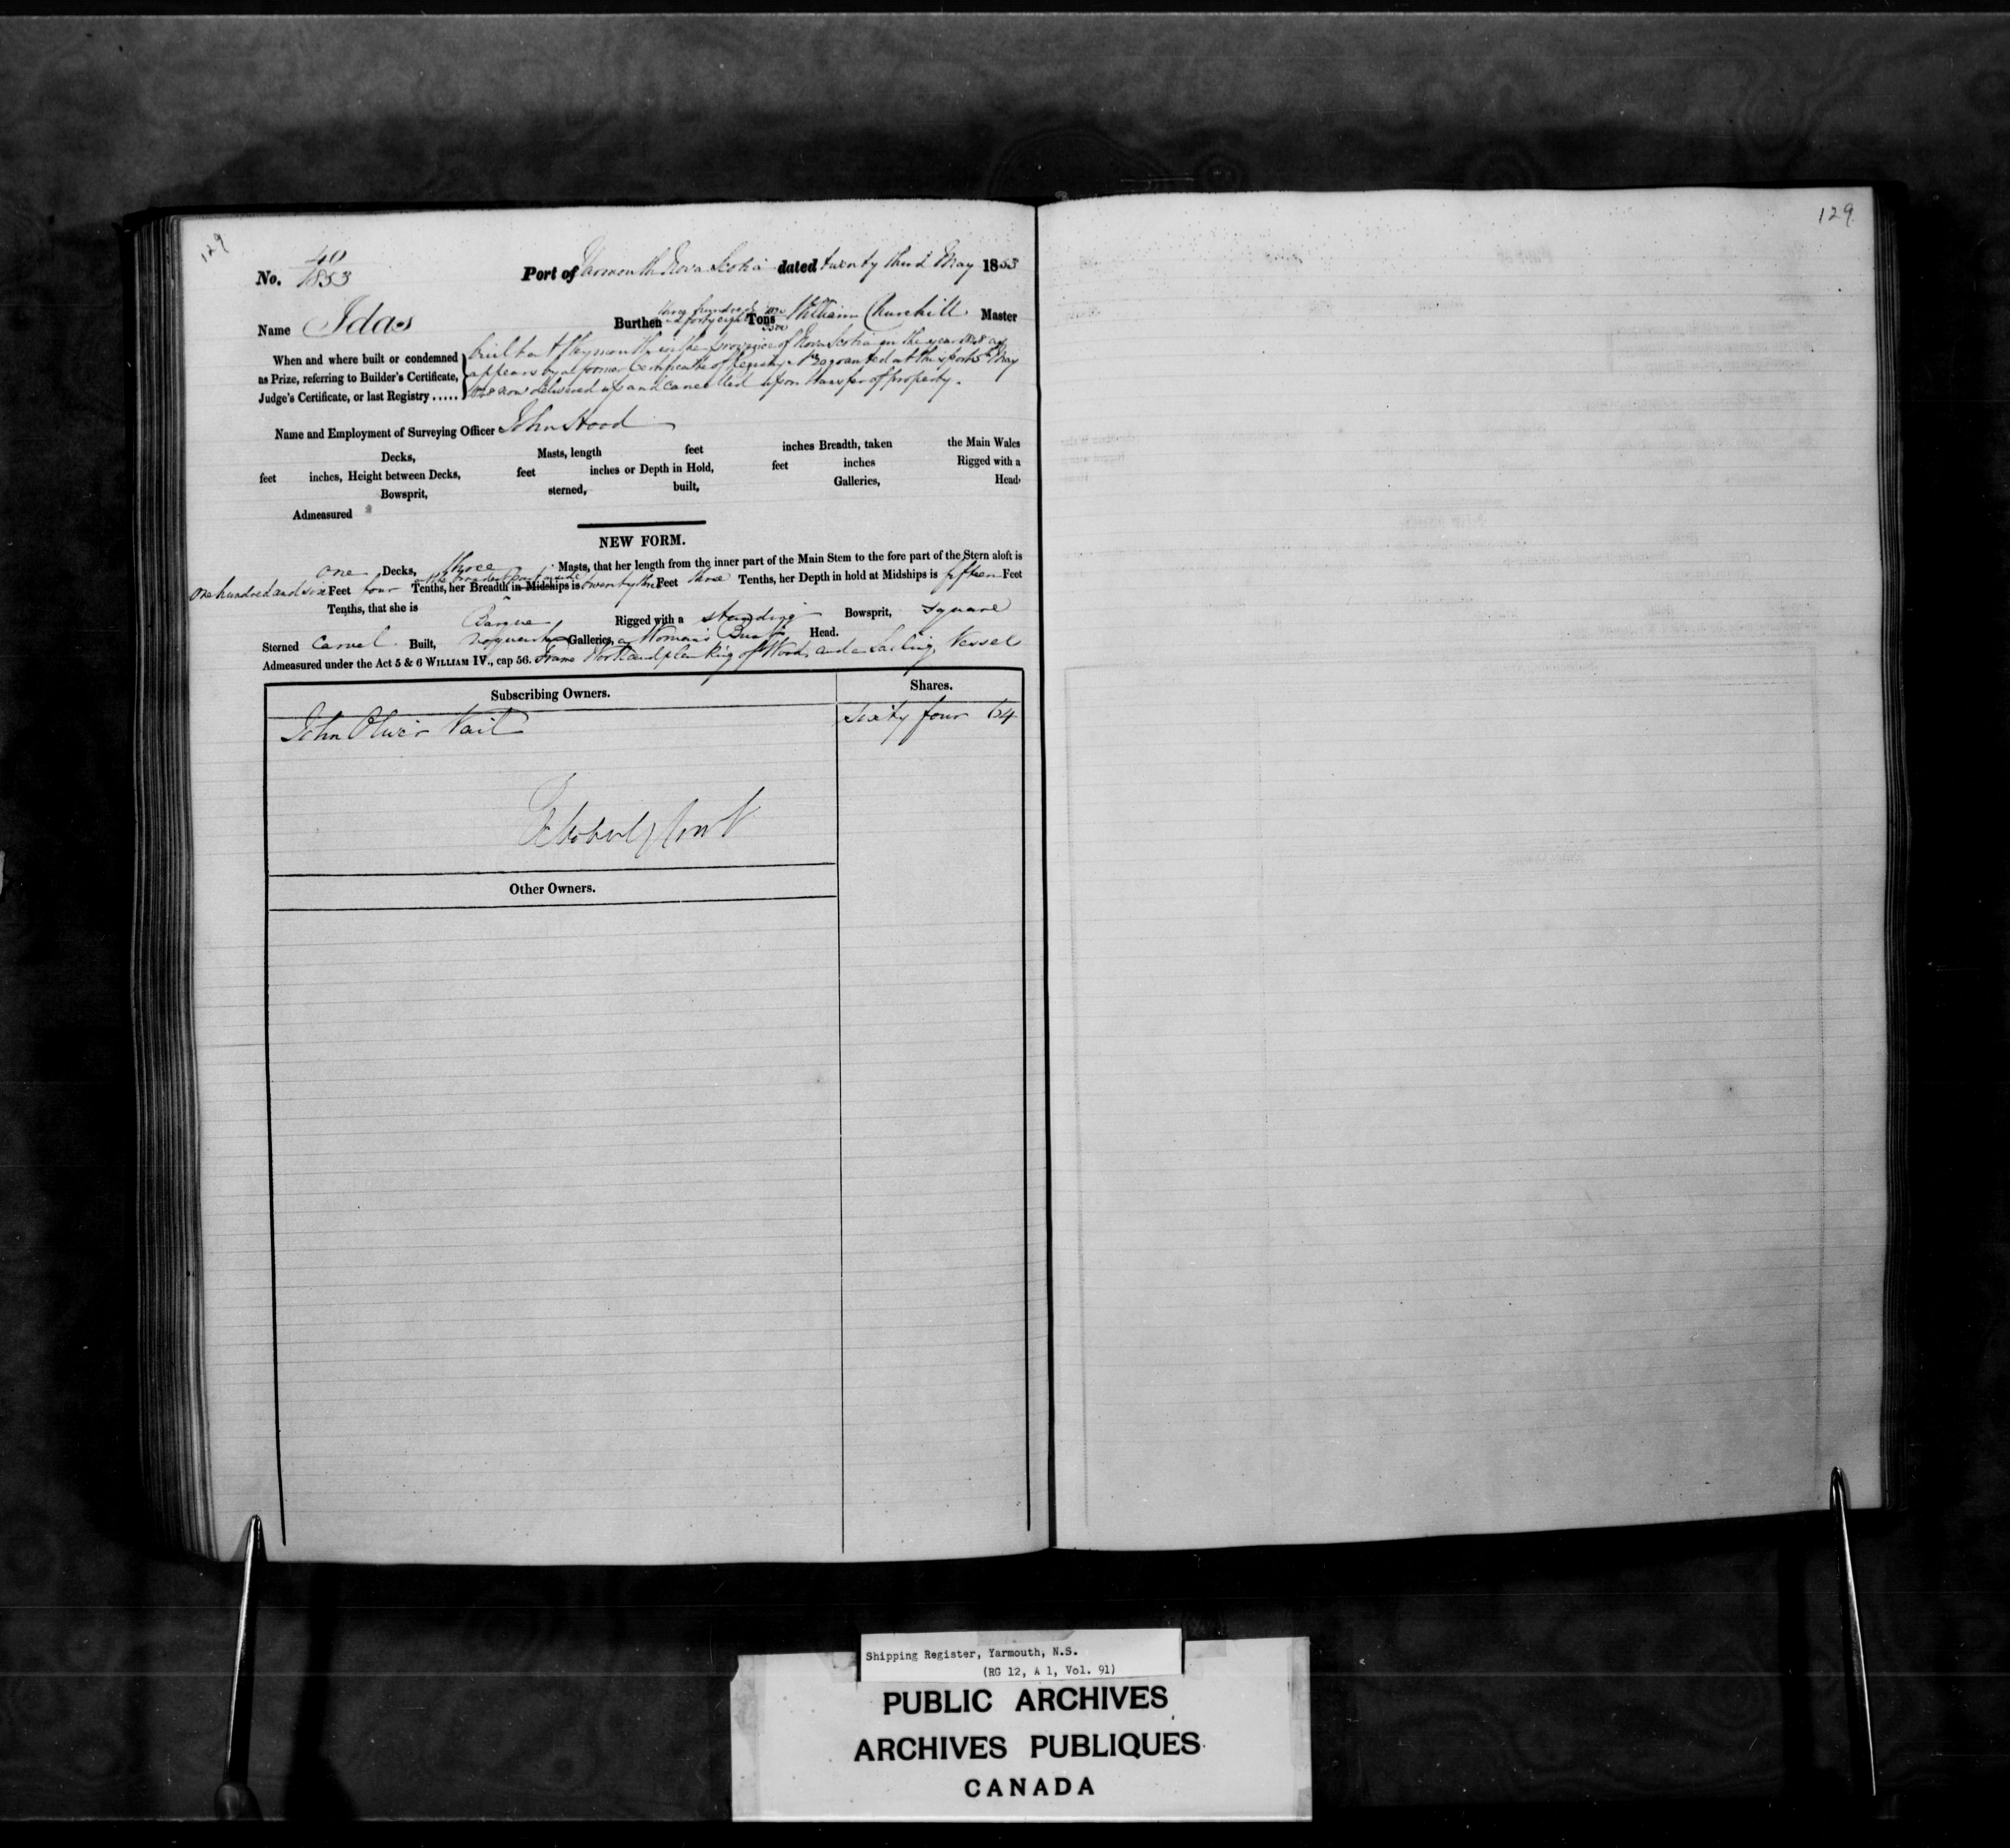 129
129
No. 40
1853
Port of Yarmouth Nova Scotia dated twenty third May 1853
Name Idas Burthen three hundred & forty eight Tons William Churchill Master
When and where built or condemned
as Prize, referring to Builder's Certificate,
Judge's Certificate, or last Registry .....
built at Weymouth in the province of Nova Scotia in the year 1848 as
appears by a former Certificate of Registry granted at this port 5th May
now delivered up and cancelled upon transfer of property.
Name and Employment of Surveying Officer John Hood
Decks, Masts, length feet inches Breadth, taken the Main Wales
feet inches, Height between Decks, feet inches or Depth in Hold, feet inches Rigged with a
Bowsprit, sterned, built, Galleries, Head
Admeasured
NEW FORM.
one Decks, three Masts, that her length from the inner part of the Main Stem to the fore part of the Stern aloft is
One hundred and six Feet four Tenths, her Breadth in Midships is twenty three Feet three Tenths, her Depth in hold at Midships is fifteen Feet
Tenths, that she is Barque Rigged with a standing Bowsprit, square
Sterned Carvel Built, no quarter Galleries, a Woman's Bust Head.
Admeasured under the Act 5 & 6 WILLIAM IV., cap 56. Frame Work and planking of Wood and a Sailing Vessel
Subscribing Owners. Shares.
John Oliver Vail Sixty four 64
Other Owners.
Shipping Register, Yarmouth, N.S.
(RG 12, A 1, Vol. 91)
PUBLIC ARCHIVES
ARCHIVES PUBLIQUES
CANADA